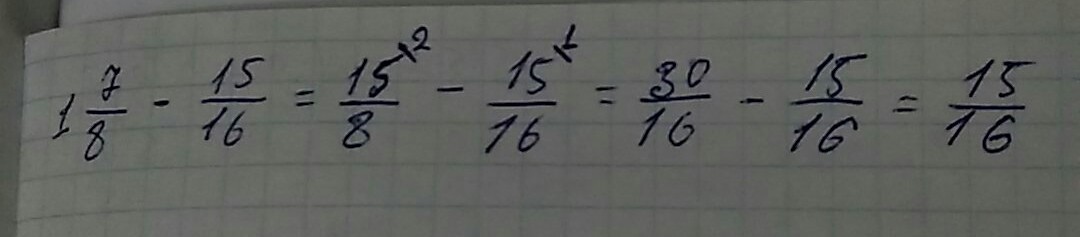 1 7/8 - 15/16 = 15\2/8 - 15\1/16 = 30/16 - 15/16 = 15/16